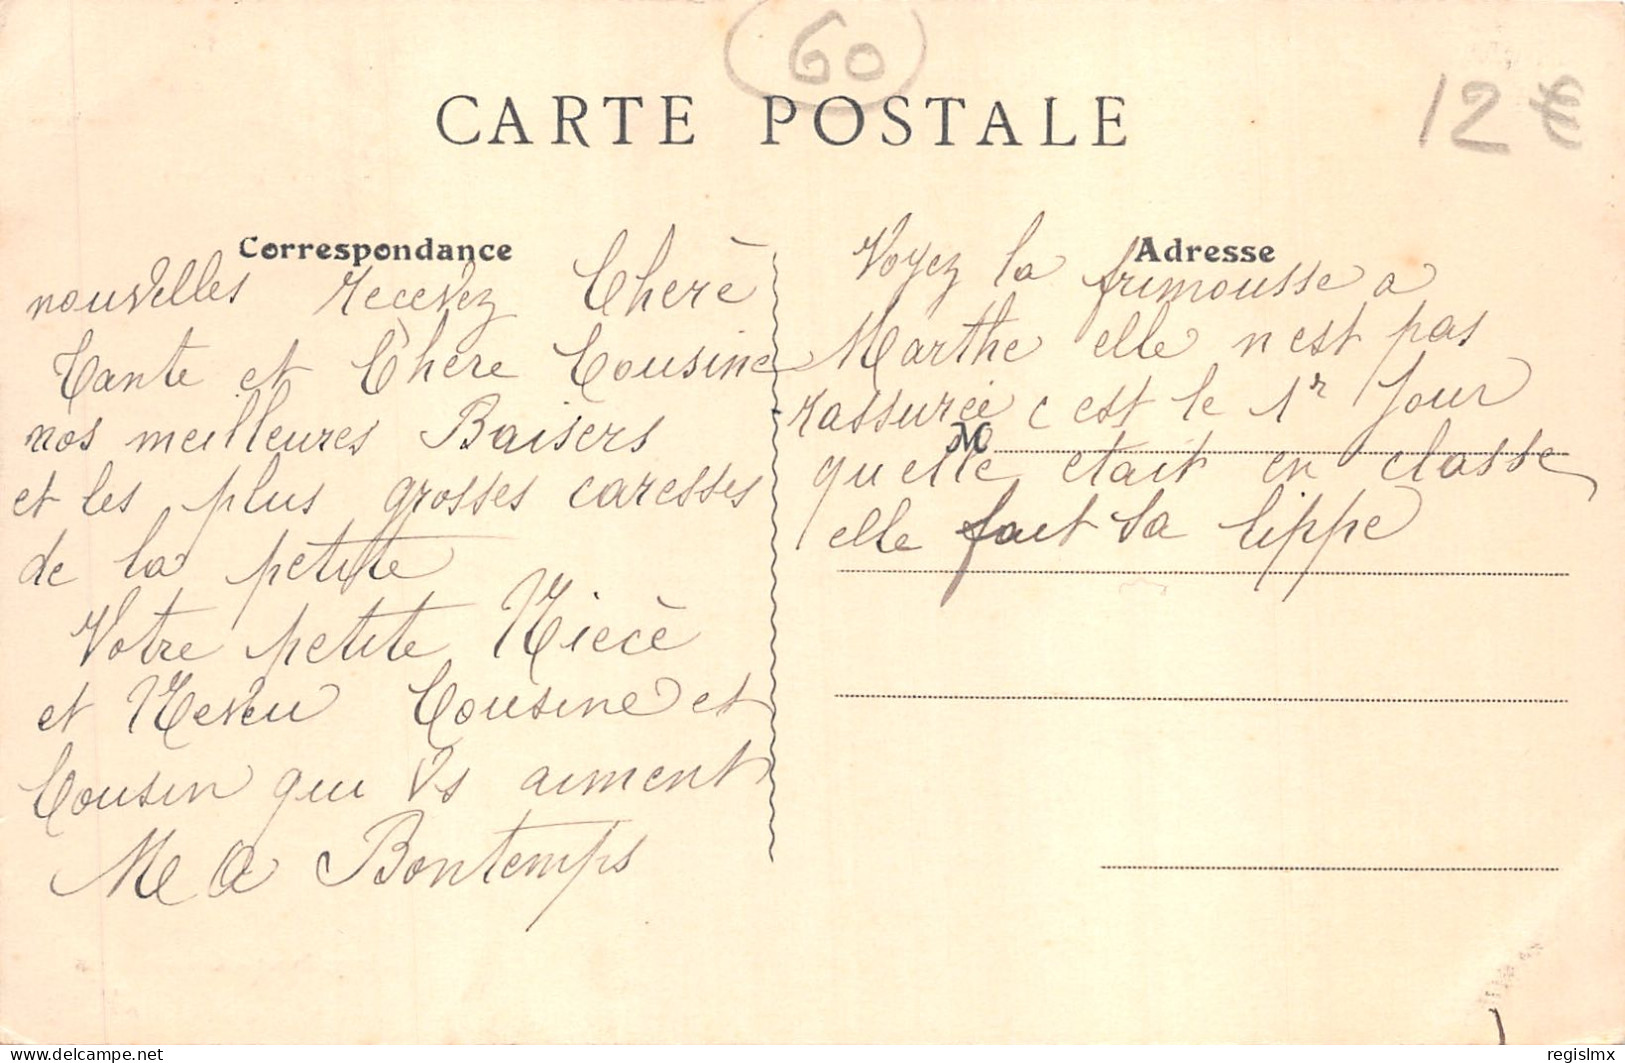 60
12 €
CARTE POSTALE
Correspondance
nouvelles recevez Cherè
Tante et Chère Cousine
nos meilleures Baisers
et les plus grosses caresses
de la petite
Votre petite Niecè
et Neveu Cousine et
Cousin qui Vs aiment
M et A Bontemps
Adresse
Voyez la frimousse a
Marthe elle n est pas
rassurée c est le 1r Jour
M
qu elle etait en classe
elle fait sa lippe
delcampe.net
regislmx